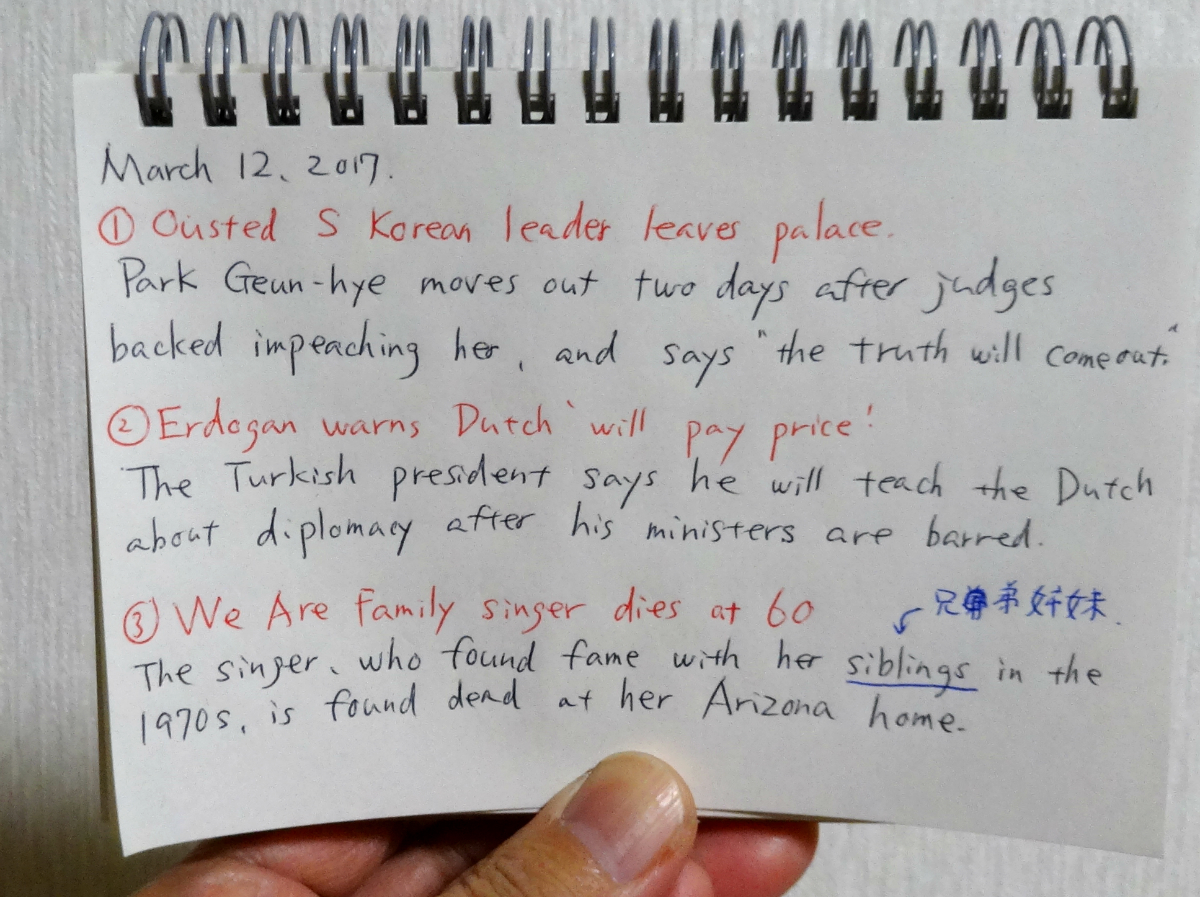 March 12, 2017.
① Ousted S Korean leader leaves palace.
Park Geun-hye moves out two days after judges
backed impeaching her, and says "the truth will come out."
② Erdogan warns Dutch 'will pay price'
The Turkish president says he will teach the Dutch
about diplomacy after his ministers are barred.
兄弟姉妹.
③ We Are Family singer dies at 60
The singer, who found fame with her siblings in the
1970s, is found dead at her Arizona home.